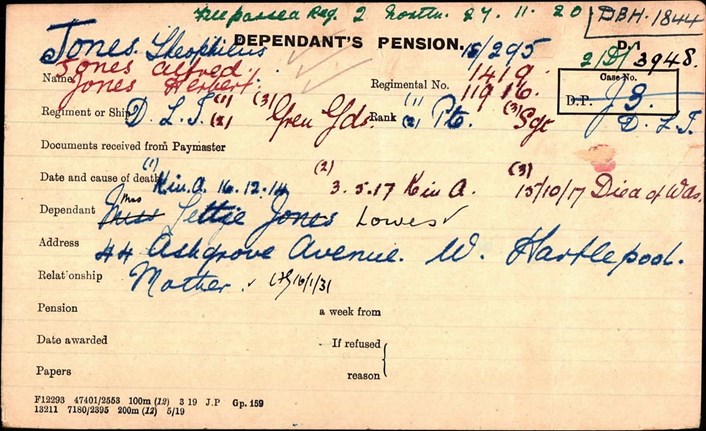 Reg. 2 27. 11. 20 DBH. 1844
DEPENDANT'S PENSION. 15/295 D.1
Jones. Theophilus 2/D/ 3948.
Name Jones Alfred. Regimental No. 1419. Case No.
Jones Herbert. (1) 11916. D.P. J3.
Regiment or Ship D. L. I. (1) (2) (3) Gren Gds. Rank (1) (2) Pte. (3) Sgt D. L. I.
Documents received from Paymaster
Date and cause of death (1) K in A. 16.12.14 (2) 3.5.17 K in A. (3) 15/10/17 Died of Wds.
Dependant Miss Mrs Lettie Jones Lowes
Address 44 Ashgrove Avenue. W. Hartlepool.
Relationship Mother. 16/1/31
Pension a week from
Date awarded If refused
Papers reason
F12293 47401/2553 100m (12) 3 19 J.P Gp. 159
13211 7180/2395 200m (12) 5/19